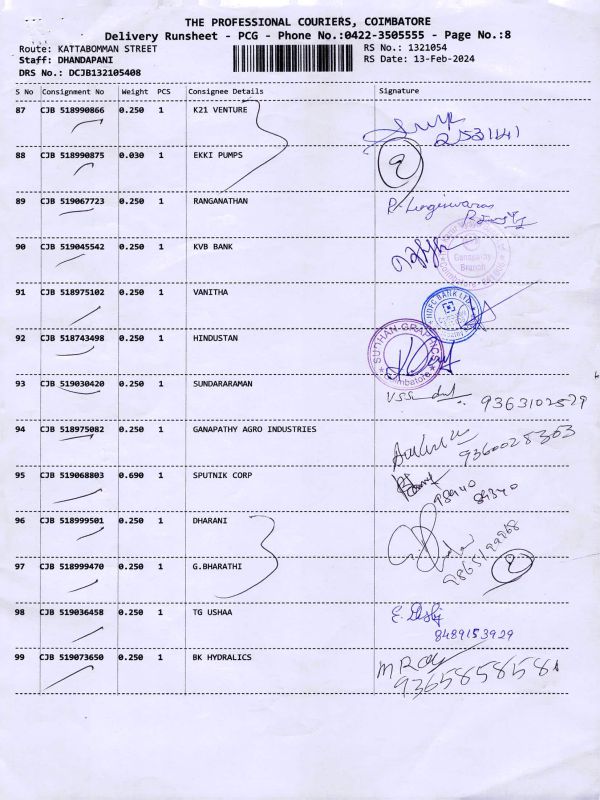 THE PROFESSIONAL COURIERS, COIMBATORE
Delivery Runsheet - PCG - Phone No.:0422-3505555 - Page No.:8
Route: KATTABOMMAN STREET RS No.: 1321054
Staff: DHANDAPANI RS Date: 13-Feb-2024
DRS No.: DCJB132105408
S No Consignment No Weight PCS Consignee Details Signature
87 CJB 518990866 0.250 1 K21 VENTURE
2531441
88 CJB 518990875 0.030 1 EKKI PUMPS
2
89 CJB 519067723 0.250 1 RANGANATHAN
R. Lingeswaran
90 CJB 519045542 0.250 1 KVB BANK
Ganapathy
Branch
91 CJB 518975102 0.250 1 VANITHA
HDFC BANK LTD
92 CJB 518743498 0.250 1 HINDUSTAN
SUDHAN GRAPHICS
Coimbatore
93 CJB 519030420 0.250 1 SUNDARARAMAN
9363102529
94 CJB 518975082 0.250 1 GANAPATHY AGRO INDUSTRIES
9360025303
95 CJB 519068803 0.690 1 SPUTNIK CORP
98940
89340
96 CJB 518999501 0.250 1 DHARANI
9865199968
97 CJB 518999470 0.250 1 G.BHARATHI
2
98 CJB 519036458 0.250 1 TG USHAA
8489153929
99 CJB 519073650 0.250 1 BK HYDRALICS
9365858581